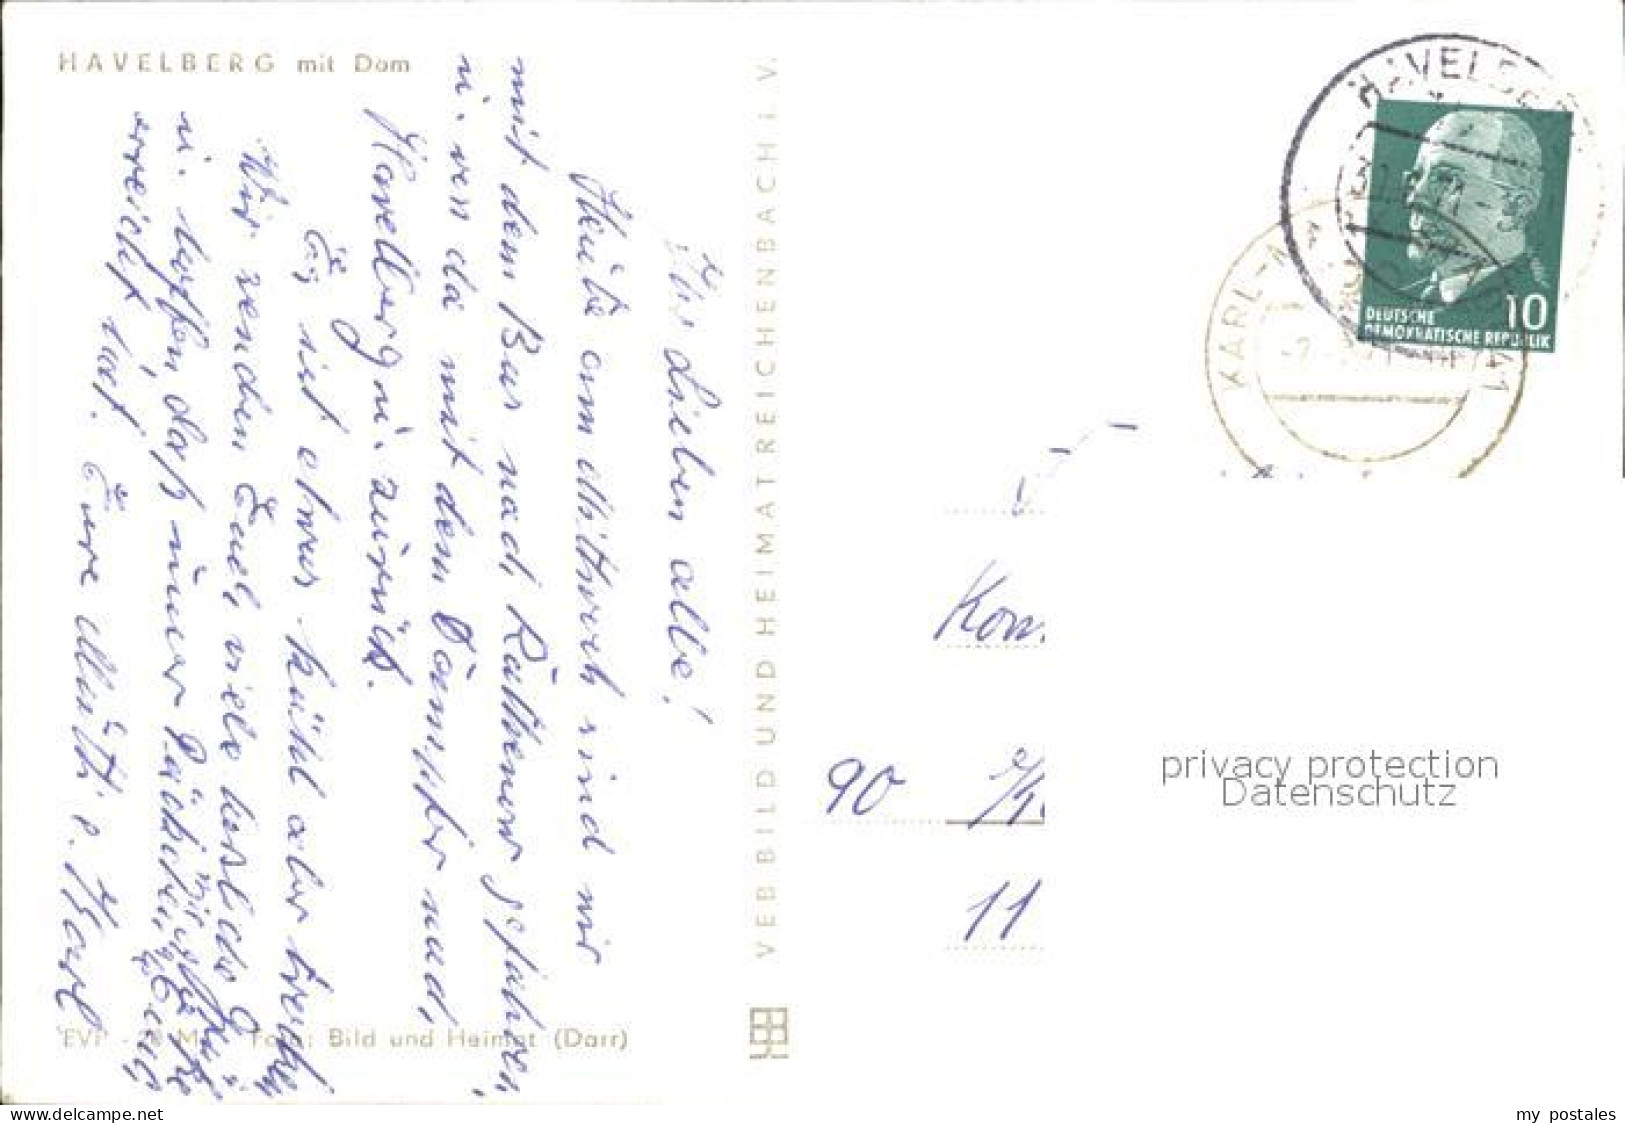 HAVELBERG mit Dom
Ihr Lieben alle!
Heute am Mittwoch sind wir
mit dem Bus nach Rathenow gefahren
u. von da mit dem Dampfer nach
Havelberg u. zurück.
Es ist etwas kühl aber trocken
Wir senden Euch viele herzliche Grüße
u. hoffen, daß unser Päckchen Euch
erreicht hat. Eure Mutti u. Karl
EVP Foto: Bild und Heimat (Darr)
VEB BILD UND HEIMAT REICHENBACH i. V.
HAVELBERG
KARL-M
10
DEUTSCHE
DEMOKRATISCHE REPUBLIK
90
11
privacy protection
Datenschutz
www.delcampe.net
my_postales